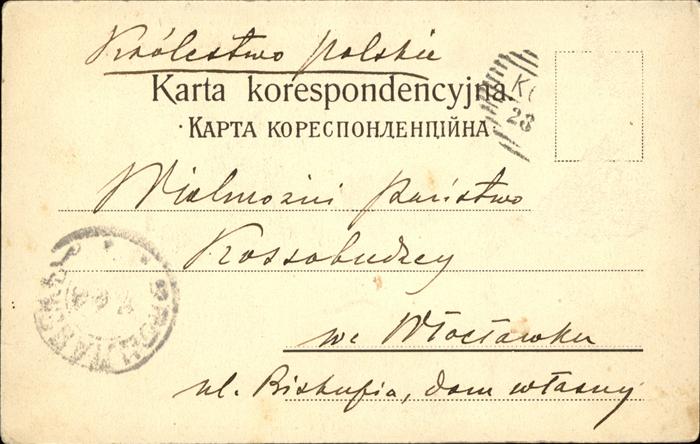 Królestwo polskie
Karta korespondencyjna.
КАРТА КОРЕСПОНДЕНЦІЙНА
23
Wielmożni państwo
Kossobudzcy
we Włocławku
ul. Biskupia, dom własny